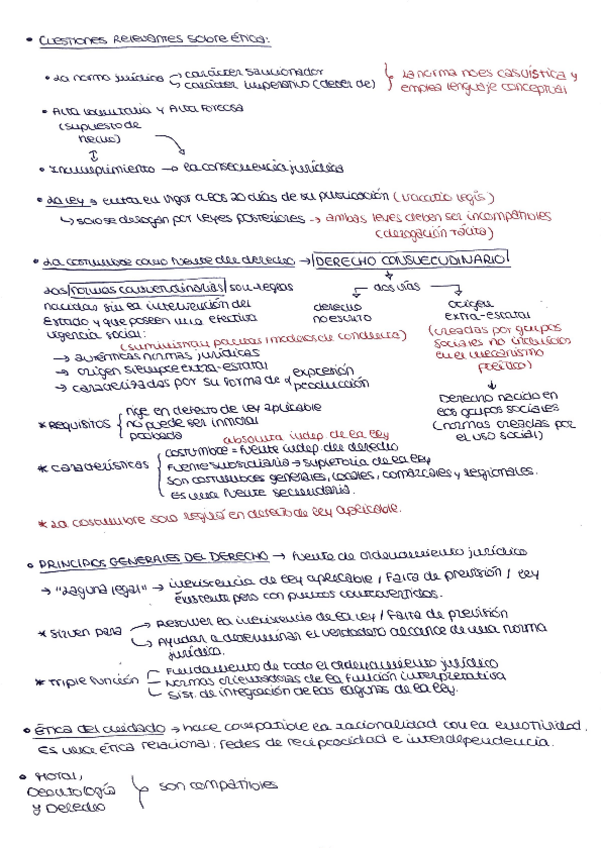 • CUESTIONES RELEVANTES SOBRE ÉTICA:
• La norma jurídica → carácter sancionador
→ carácter imperativo (deber de)
La norma no es casuística y
emplea lenguaje conceptual
• Alta voluntaria y Alta forzosa
(supuesto de
hecho)
• Incumplimiento → la consecuencia jurídica
• La ley → entra en vigor a los 20 días de su publicación (vacatio legis)
↳ solo se derogan por leyes posteriores → ambas leyes deben ser incompatibles
(derogación tácita)
• La costumbre como fuente del derecho → DERECHO CONSUETUDINARIO
Las normas consuetudinarias son reglas
nacidas sin la intervención del
Estado y que poseen una efectiva
vigencia social:
(suministran pautas/modelos de conducta)
→ auténticas normas jurídicas
→ origen siempre extra-estatal
→ caracterizadas por su forma de expresión
producción
dos vías
derecho
no escrito
origen
extra-estatal
(creadas por grupos
sociales no
en el mecanismo
político)
Derecho nacido en
los grupos sociales
(normas creadas por
el uso social)
* Requisitos rige en defecto de ley aplicable
no puede ser inmoral
probada
absoluta indep. de la ley
* Características costumbre = fuente indep. del derecho
fuente subsidiaria → supletoria de la ley
son costumbres generales, locales, comarcales y regionales.
Es una fuente secundaria.
* La costumbre solo regirá en defecto de ley aplicable.
• PRINCIPIOS GENERALES DEL DERECHO → fuente de ordenamiento jurídico
→ "Laguna legal" → inexistencia de ley aplicable / Falta de previsión / ley
existente pero con puntos controvertidos.
* Sirven para → Resolver la inexistencia de la ley / Falta de previsión
↳ Ayudar a determinar el verdadero alcance de una norma
jurídica.
* Triple función Fundamento de todo el ordenamiento jurídico
Normas orientadoras de la función interpretativa
Sist. de integración de las lagunas de la ley.
• Ética del cuidado → hace compatible la racionalidad con la emotividad.
Es una ética relacional: redes de reciprocidad e interdependencia.
• Moral,
Deontología
y Derecho
son compatibles